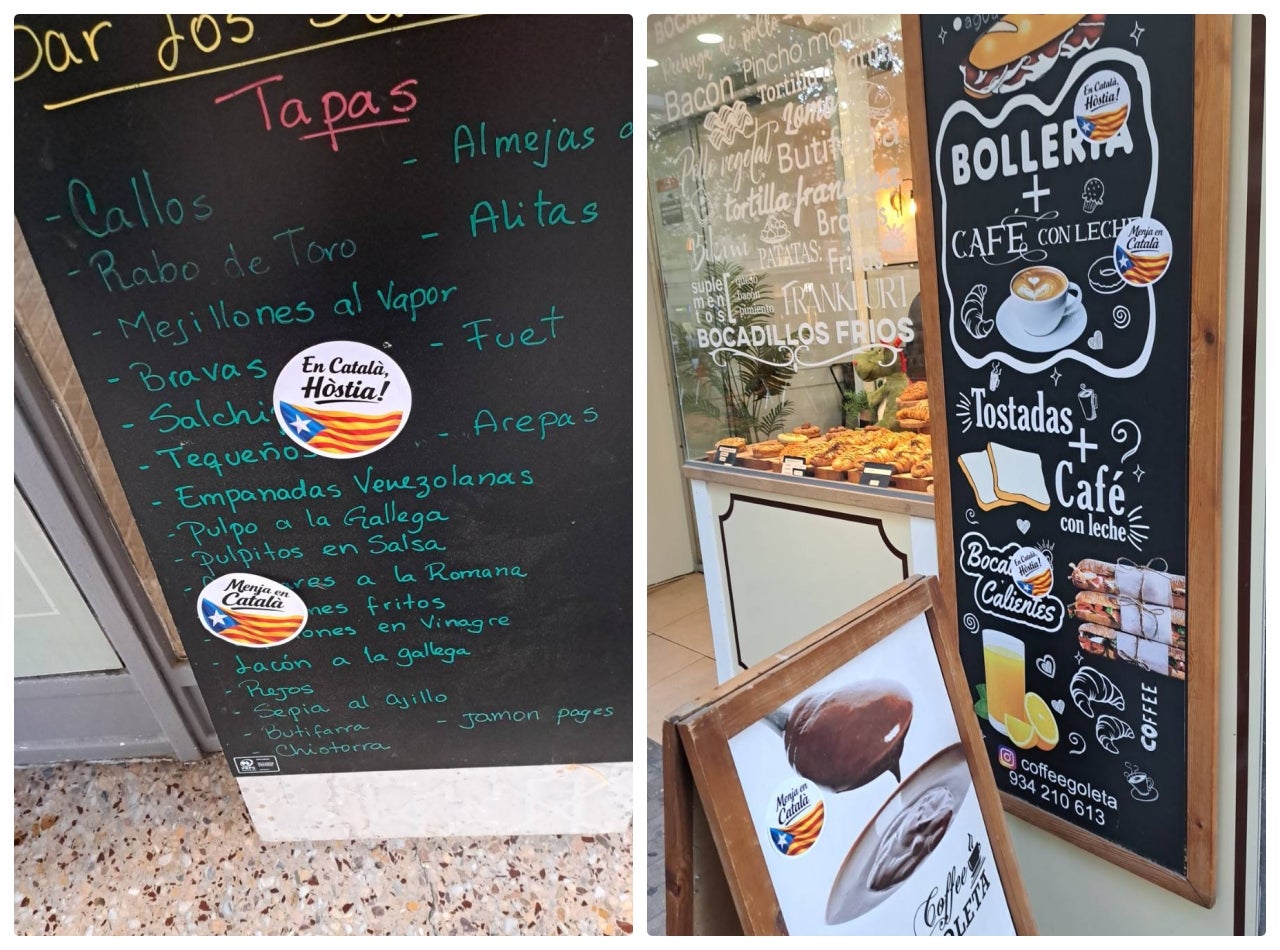 Bar Los
Tapas
- Callos
- Rabo de Toro
- Mejillones al Vapor
- Bravas
- Salchi
- Tequeños
- Empanadas Venezolanas
- Pulpo a la Gallega
- Pulpitos en Salsa
a la Romana
fritos
en Vinagre
- Lacón a la gallega
- Rejos
- Sepia al ajillo
- Butifarra
- Chistorra
- Almejas
- Alitas
- Fuet
- Arepas
- jamon pages
En Català,
Hòstia!
Menja en
Català
de pollo
Pincho moruno
Bacón
Tortilla
Lomo
Pollo vegetal
Butifarra
tortilla francesa
Bikini
PATATAS:
Bravas
Fritas
suple
men
tos
queso
bacón
pimiento
FRANKFURT
BOCADILLOS FRIOS
agua
En Català,
Hòstia!
BOLLERÍA
+
CAFÉ CON LECHE
Menja en
Català
Tostadas
+
Café
con leche
Boca
Calientes
En Català,
Hòstia!
COFFEE
coffeegoleta
934 210 613
Menja en
Català
Coffee
OLETA